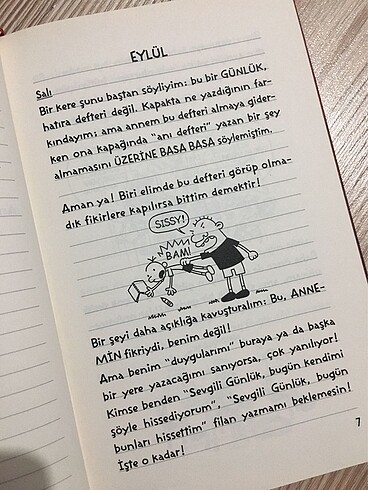 EYLÜL
Salı
Bir kere şunu baştan söyliyim: bu bir GÜNLÜK,
hatıra defteri değil. Kapakta ne yazdığının far-
kındayım; ama annem bu defteri almaya gider-
ken ona kapağında “anı defteri” yazan bir şey
almamasını ÜZERİNE BASA BASA söylemiştim.
Aman ya! Biri elimde bu defteri görüp olma-
dık fikirlere kapılırsa bittim demektir!
SISSY!
BAM!
Bir şeyi daha açıklığa kavuşturalım: Bu, ANNE-
MİN fikriydi, benim değil!
Ama benim “duygularımı” buraya ya da başka
bir yere yazacağımı sanıyorsa, çok yanılıyor!
Kimse benden “Sevgili Günlük, bugün kendimi
şöyle hissediyorum”, “Sevgili Günlük, bugün
bunları hissettim” filan yazmamı beklemesin!
İşte o kadar!
7